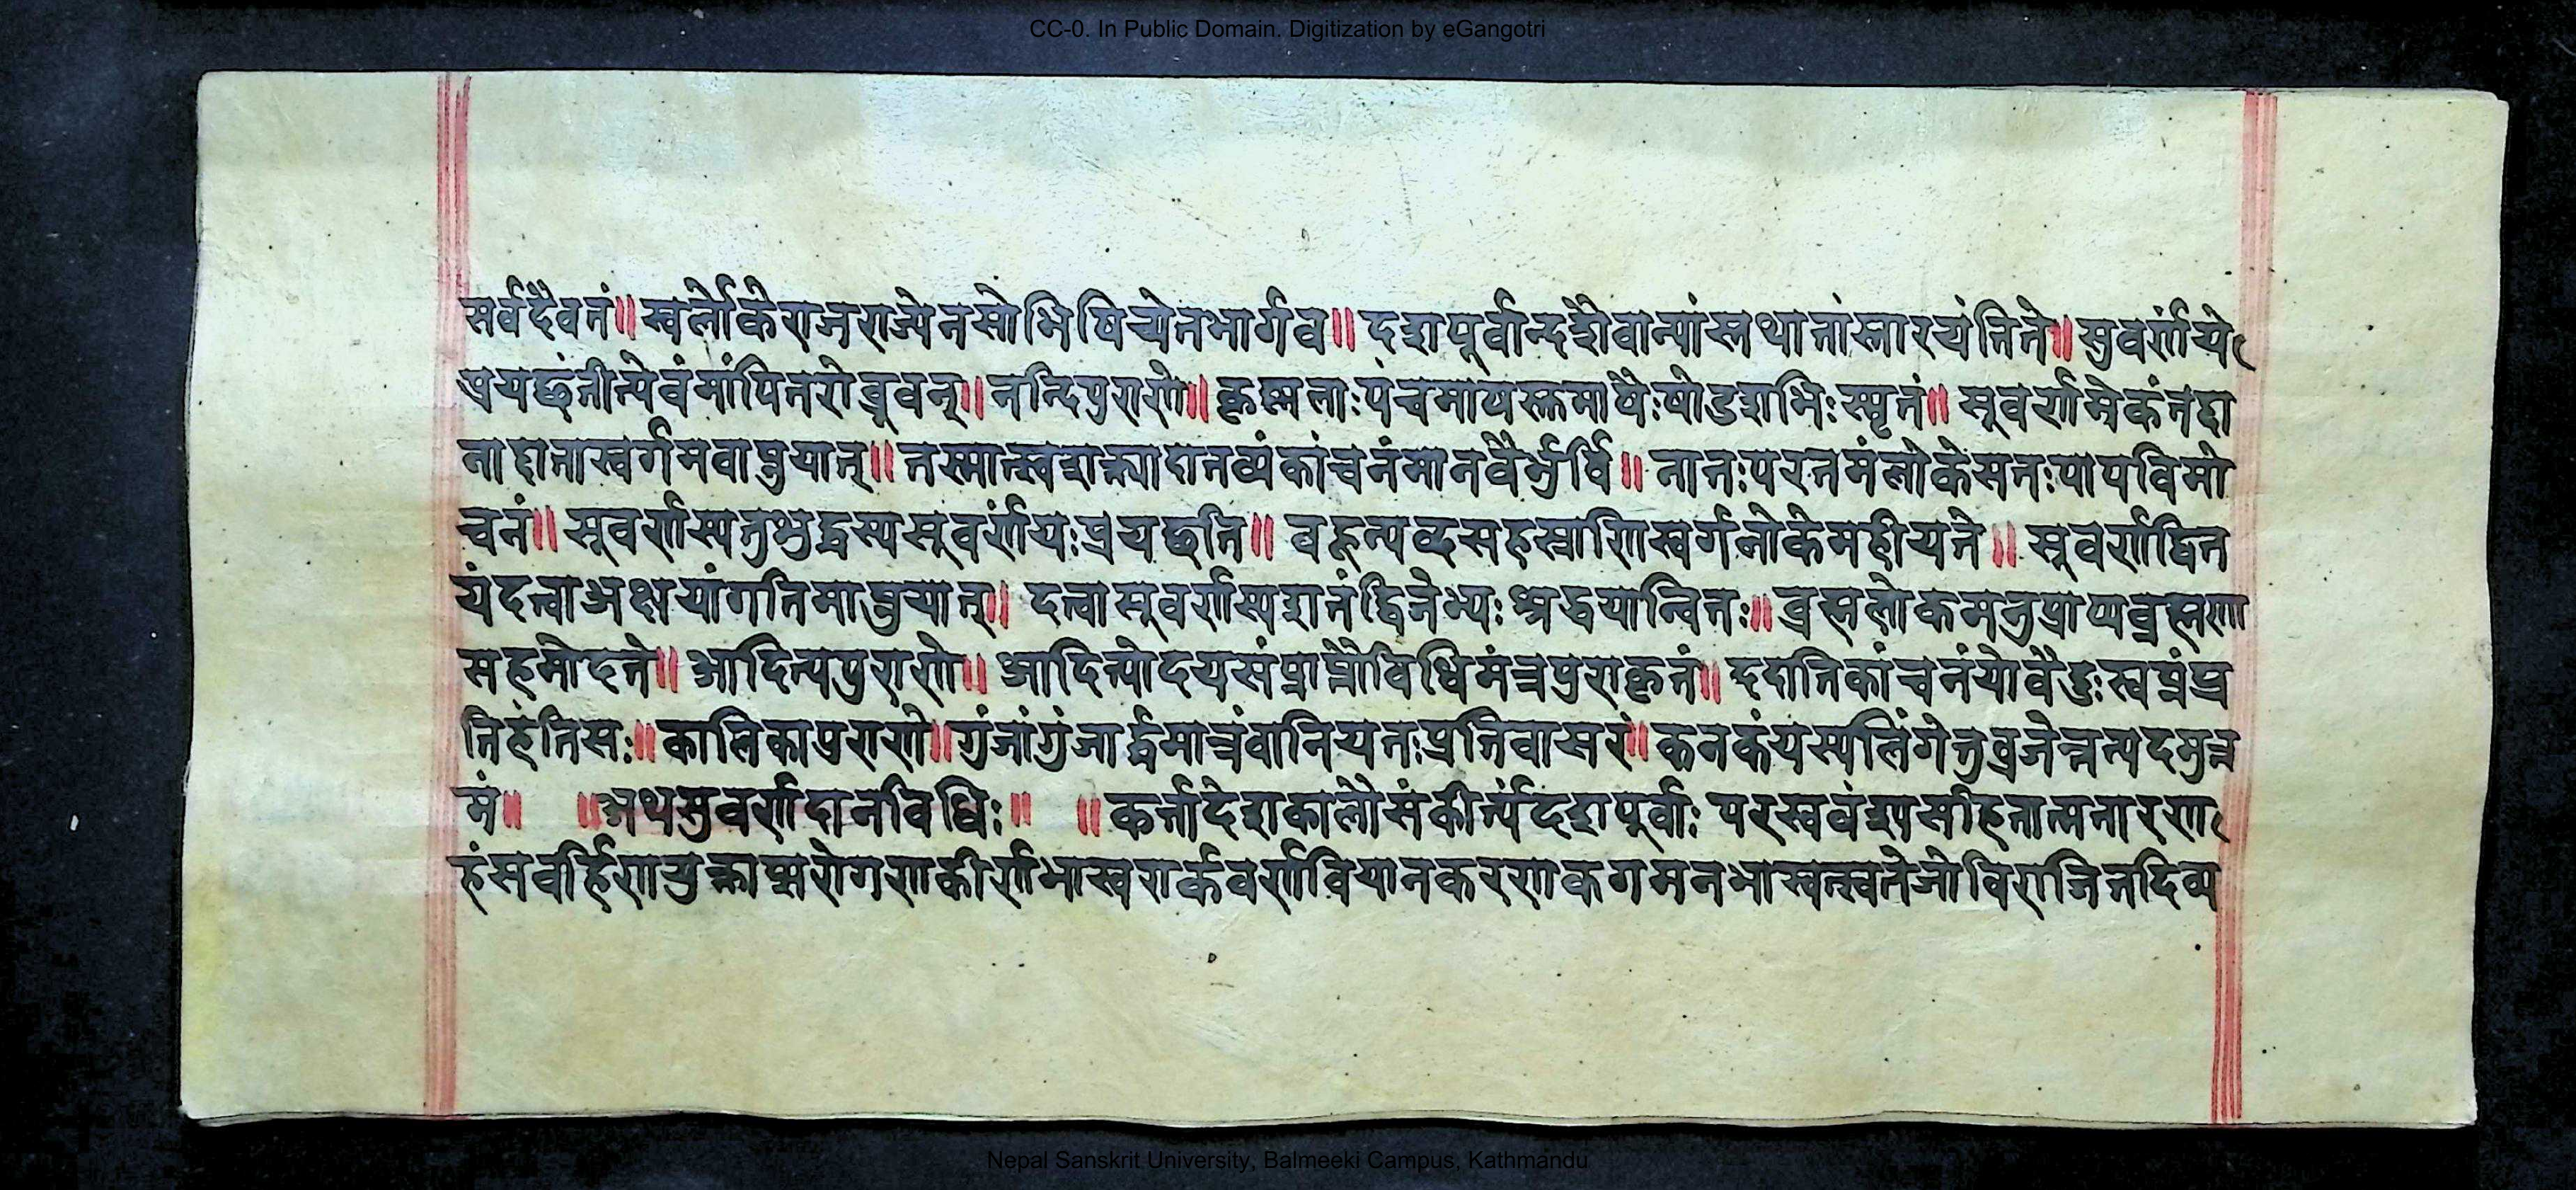 CC-0. In Public Domain. Digitization by eGangotri
सर्वदैवतं॥ स्वर्लोकेराजराज्येनसोभिषिच्येतभार्गव॥ दशपूर्वान्दशैवान्यांस्तथातांस्तारयंतिते॥ सुवर्णंये
प्रयछंतीत्येवंमांपितरोब्रुवन्॥ नन्दिपुराणे॥ कृष्मलाःपंचमाषस्तमाषैःषोडशभिःस्मृतं॥ सूवर्णमेकंतद्दा
नाद्दातास्वर्गमवाप्नुयात्॥ तस्मात्स्वशक्त्यादातव्यंकांचनंमानवैर्भुर्वि॥ नातःपरतमंलोकेसतःपापविमो
चनं॥ सूवर्णस्यतुभुद्धस्यसूवर्णंयःप्रयछति॥ वहून्यव्दसहस्राणिस्वर्गलोकेमहीयते॥ सूवर्णद्वित
यंदत्वाअक्षयांगतिमाप्नुयात्॥ दत्वासूवर्णस्यशतंद्विजेभ्यःश्रद्धयान्वितः॥ ब्रह्मलोकमनुप्राप्यब्रह्मणा
सहमोदते॥ आदित्यपुराणे॥ आदित्योदयसंप्राप्तौविधिमंत्रपुराकृतं॥ ददातिकांचनंयोवैदुःस्वप्नंप्र
तिहंतिसः॥ कालिकापुराणे॥ गुंजांगुंजार्द्धमात्रंवानियतःप्रतिवासरं॥ कनकंयस्यलिंगेतुव्रजेत्नत्पदमुत्त
मं॥ ॥अथसुवर्णदानविधिः॥ ॥कर्त्तादेशकालौसंकीर्त्यंदशपूर्वाः परस्ववंश्यसहितात्मनारण
हंसवर्हिणयुक्ताप्सरोगणाकीर्णभास्वरार्कवर्णवियानकरणकगमनभास्वत्स्वतेजोविराजितदिव्य
Nepal Sanskrit University, Balmeeki Campus, Kathmandu